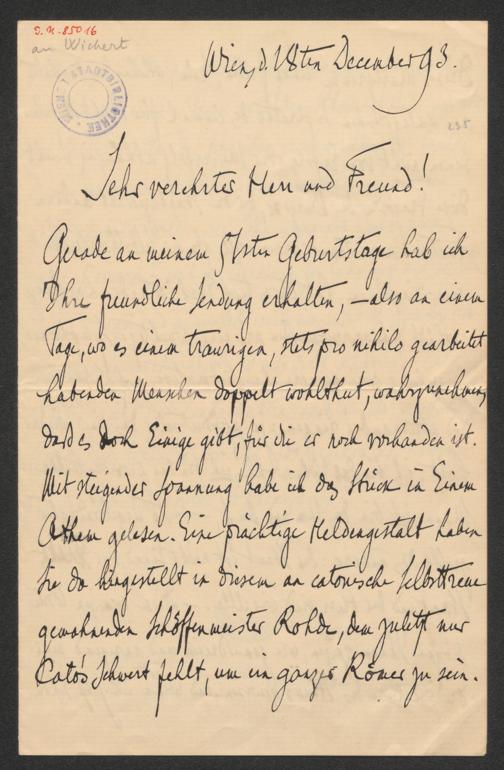 J. N. 85016
an Wichert
WIENER STADTBIBLIOTHEK
Wien, d. 18ten December 93.
235
Sehr verehrter Herr und Freund!
Gerade an meinem 51sten Geburtstage hab ich
Ihre freundliche Sendung erhalten, – also an einem
Tage, wo es einem traurigen, stets pro nihilo gearbeitet
habenden Menschen doppelt wohlthut, wahrzunehmen,
daß es doch Einige gibt, für die er noch vorhanden ist.
Mit steigender Spannung habe ich das Stück in Einem
Athem gelesen. Eine prächtige Heldengestalt haben
Sie da hingestellt in diesem an catonische Selbsttreue
gemahnenden Schöffenmeister Rohde, dem zuletzt nur
Cato's Schwert fehlt, um ein ganzer Römer zu sein.